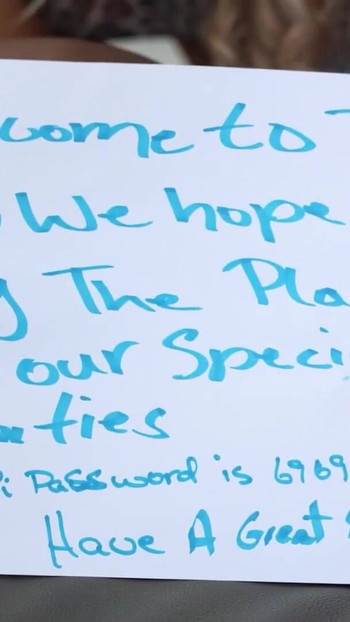 come to
We hope
The Pla
our Speci
ties
i Password is 6969
Have A Great